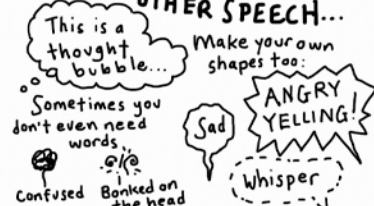 OTHER SPEECH...
This is a
thought
bubble...
Make your own
shapes too:
Sometimes you
don't even need
words.
Sad
ANGRY
YELLING!
Whisper
Confused
Bonked on
the head